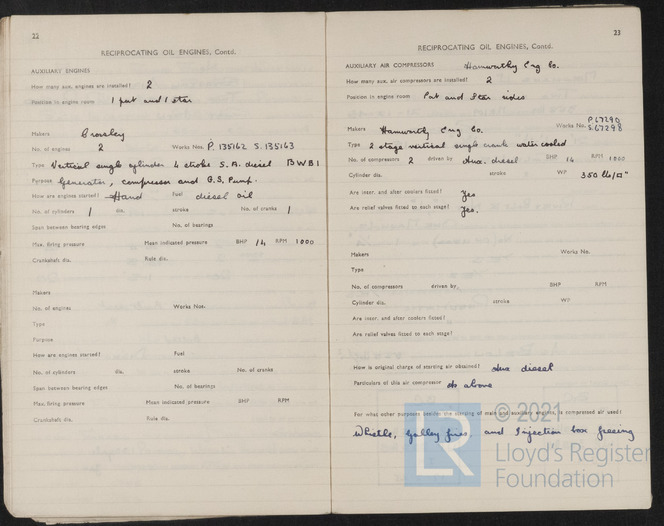 22
RECIPROCATING OIL ENGINES, Contd.
AUXILIARY ENGINES
How many aux. engines are installed? 2
Position in engine room 1 port and 1 star
Makers Crossley
No. of engines 2 Works Nos. P. 135162 S. 135163
Type Vertical single cylinder 4 stroke S.A. diesel BWB1
Purpose Generator, compressor and G.S. Pump.
How are engines started? Hand Fuel diesel oil
No. of cylinders 1 dia. stroke No. of cranks 1
Span between bearing edges No. of bearings
Max. firing pressure Mean indicated pressure BHP 14 RPM 1000
Crankshaft dia. Rule dia.
Makers
No. of engines Works Nos.
Type
Purpose
How are engines started? Fuel
No. of cylinders dia. stroke No. of cranks
Span between bearing edges No. of bearings
Max. firing pressure Mean indicated pressure BHP RPM
Crankshaft dia. Rule dia.
23
RECIPROCATING OIL ENGINES, Contd.
AUXILIARY AIR COMPRESSORS Hamworthy Eng Co.
How many aux. air compressors are installed? 2
Position in engine room Port and Star sides
Makers Hamworthy Eng Co. Works No. P.67290
S.67298
Type 2 stage vertical single crank water cooled
No. of compressors 2 driven by Aux. diesel BHP 14 RPM 1000
Cylinder dia. stroke WP 350 lb/□"
Are inter. and after coolers fitted? Yes
Are relief valves fitted to each stage? Yes.
Makers Works No.
Type
No. of compressors driven by BHP RPM
Cylinder dia. stroke WP
Are inter. and after coolers fitted?
Are relief valves fitted to each stage?
How is original charge of starting air obtained? Aux diesel
Particulars of this air compressor as above
For what other purposes besides the starting of main and auxiliary engines, is compressed air used?
Whistle, Galley fires, and Injection box freeing
© 2021
LR
Lloyd's Register
Foundation